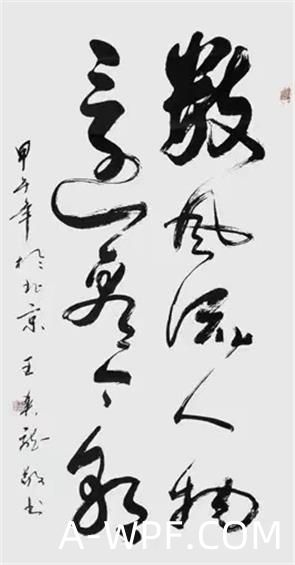 數风流人物
還看今朝
甲午年於北京 王龍敬书
A-WPF.COM